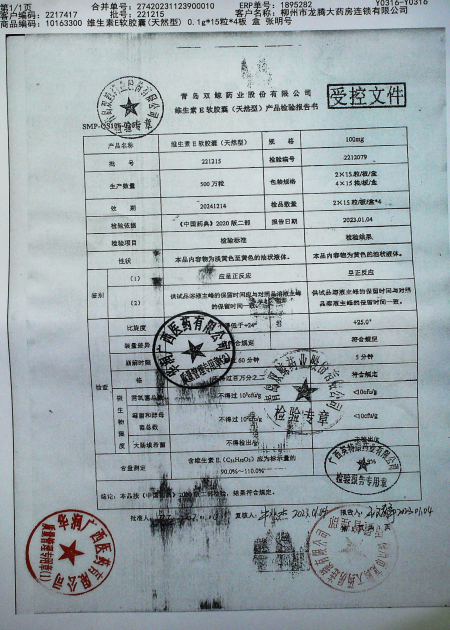 第1/1页 合并单号: 2742023112390​0010 ERP单号: 1895282 Y0316-Y0316
客户编码: 2217417 批号: 221215 客户名称: 柳州市龙腾大药房连锁有限公司
商品编码: 10163300 维生素E软胶囊(天然型) 0.1g*15粒*4板 盒 张明号
青岛双鲸药业股份有限公司
维生素E软胶囊（天然型）产品检验报告书
受控文件
产品名称 维生素E软胶囊（天然型） 规格 100mg
批号 221215 检验编号 2212079
生产数量 500万粒 包装规格 2×15粒/板/盒
4×15粒/板/盒
效期 20241214 检品数量 2×15粒/板/盒*4
检验依据 《中国药典》2020版二部 报告日期 2023.01.04
检验项目 检验标准 检验结果
性状 本品内容物为淡黄色至黄色的油状液体。 本品内容物为黄色的油状液体。
鉴别 （1） 应呈正反应 呈正反应
（2） 供试品溶液主峰的保留时间应与对照品溶液主峰的保留时间一致。 供试品溶液主峰的保留时间与对照品溶液主峰的保留时间一致。
比旋度 低于+24° +25.0°
装量差异 符合规定 符合规定
崩解时限 60分钟 5分钟
检查 过百万分之二 符合规定
微生物限度 需氧菌总数 不得过10³cfu/g <10cfu/g
霉菌和酵母菌总数 不得过10²cfu/g <10cfu/g
大肠埃希菌 不得检出/g
含量测定 含维生素E（C₃₁H₅₂O₃）应为标示量的
90.0%～110.0%
结论：本品按《中国药典》2020版二部检验，结果符合规定。
批准人： 复核人： 2023.01.04 报告人： 2023.01.04
检验专章
华润广西医药有限公司
质量管理专用章(1)